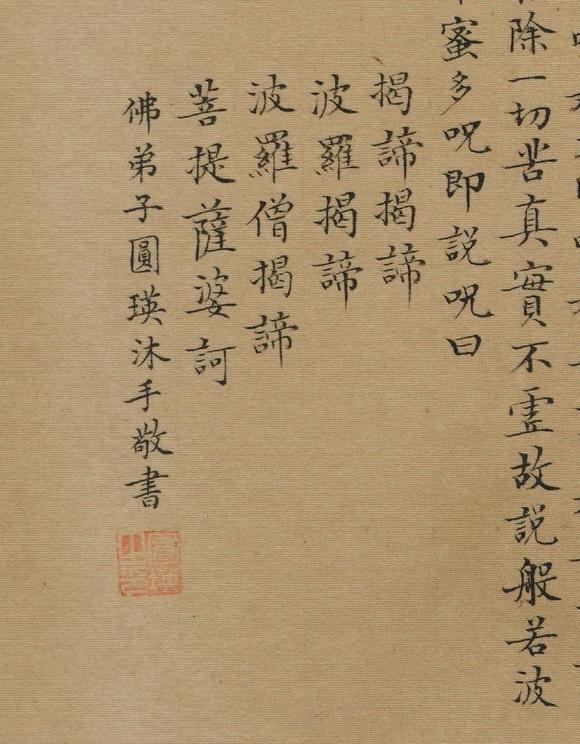 除一切苦真實不虛故說般若波
蜜多呪即說呪曰
揭諦揭諦
波羅揭諦
波羅僧揭諦
菩提薩婆訶
佛弟子圓瑛沐手敬書